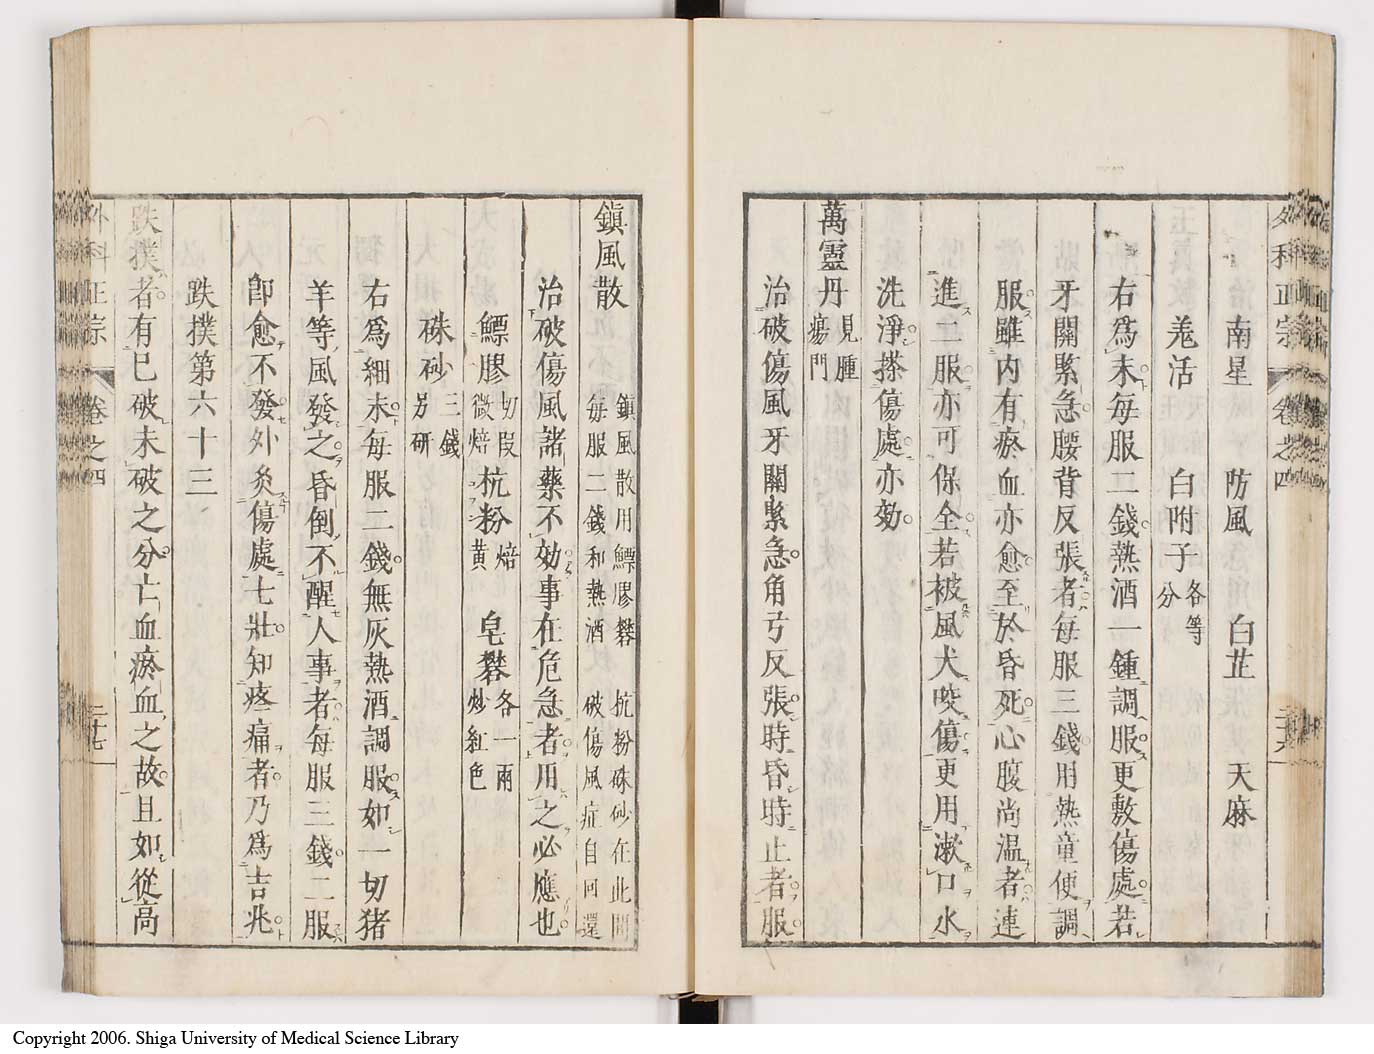 外科正宗　卷之四
南星　防風　白芷　天麻
羗活　白附子各等分
右爲末每服二錢熱酒一鍾調服更敷傷處若
牙關緊急腰背反張者每服三錢用熱童便調
服雖内有瘀血亦愈至於昏死心腹尚溫者連
進二服亦可保全若被風犬咬傷更用漱口水
洗淨搽傷處亦効
萬靈丹見腫瘍門
治破傷風牙關緊急角弓反張時昏時止者服
鎮風散
鎮風散用鰾膠礬　杭粉硃砂在此間
每服二錢和熱酒　破傷風症自回還
治破傷風諸藥不効事在危急者用之必應也
鰾膠切段微焙　杭粉焙黄　皂礬各一兩炒紅色
硃砂三錢另研
右爲細末每服二錢無灰熱酒調服如一切猪
羊等風發之昏倒不醒人事者每服三錢二服
卽愈不發外灸傷處七壯知疼痛者乃爲吉兆
跌撲第六十三
跌撲者有已破未破之分亡血瘀血之故且如從高
外科正宗　卷之四　二十七
Copyright 2006. Shiga University of Medical Science Library